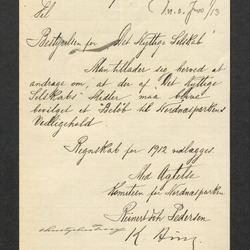 Til
Bestyrelsen for "Det Nyttige Selskab"
Man tillader sig herved at
andrage om, at der af "Det Nyttige
Selskabs" Midler maa blive
bevilget et Beløb til Nordnæsparkens
Vedligehold.
Regnskab for 1912 vedlægges.
Med Agtelse
Komiteen for Nordnæsparken
Reinert Joh Pedersen
K